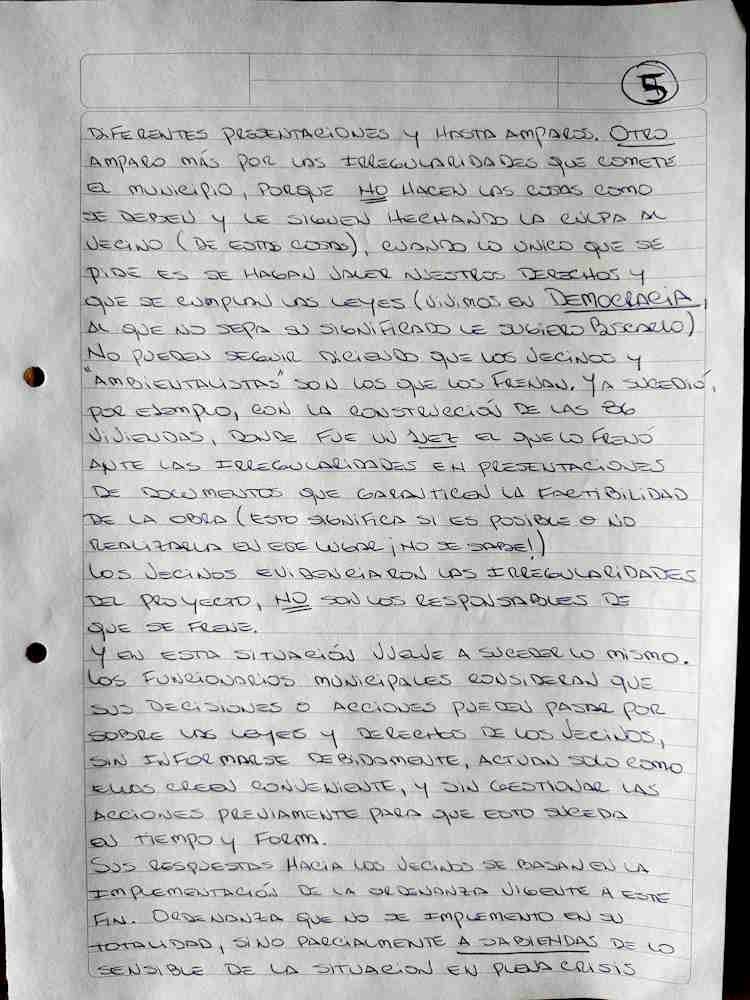 5
DIFERENTES PRESENTACIONES Y HASTA AMPAROS. OTRO
AMPARO MÁS POR LAS IRREGULARIDADES QUE COMETE
EL MUNICIPIO, PORQUE NO HACEN LAS COSAS COMO
SE DEBEN Y LE SIGUEN HECHANDO LA CULPA AL
VECINO (DE ESTAS COSAS), CUANDO LO UNICO QUE SE
PIDE ES SE HAGAN VALER NUESTROS DERECHOS Y
QUE SE CUMPLAN LAS LEYES (VIVIMOS EN DEMOCRACIA,
AL QUE NO SEPA SU SIGNIFICADO LE SUGIERO BUSCARLO)
NO PUEDEN SEGUIR DICIENDO QUE LOS VECINOS Y
"AMBIENTALISTAS" SON LOS QUE LOS FRENAN. YA SUCEDIÓ,
POR EJEMPLO, CON LA CONSTRUCCIÓN DE LAS 86
VIVIENDAS, DONDE FUE UN JUEZ EL QUE LO FRENÓ
ANTE LAS IRREGULARIDADES EN PRESENTACIONES
DE DOCUMENTOS QUE GARANTICEN LA FACTIBILIDAD
DE LA OBRA (ESTO SIGNIFICA SI ES POSIBLE O NO
REALIZARLA EN ESE LUGAR ¡NO SE SABE!)
LOS VECINOS EVIDENCIARON LAS IRREGULARIDADES
DEL PROYECTO, NO SON LOS RESPONSABLES DE
QUE SE FRENE.
Y EN ESTA SITUACIÓN VUELVE A SUCEDER LO MISMO.
LOS FUNCIONARIOS MUNICIPALES CONSIDERAN QUE
SUS DECISIONES O ACCIONES PUEDEN PASAR POR
SOBRE LAS LEYES Y DERECHOS DE LOS VECINOS,
SIN INFORMARSE DEBIDAMENTE, ACTUAN SOLO COMO
ELLOS CREEN CONVENIENTE, Y SIN GESTIONAR LAS
ACCIONES PREVIAMENTE PARA QUE ESTO SUCEDA
EN TIEMPO Y FORMA.
SUS RESPUESTAS HACIA LOS VECINOS SE BASAN EN LA
IMPLEMENTACIÓN DE LA ORDENANZA VIGENTE A ESTE
FIN. ORDENANZA QUE NO SE IMPLEMENTO EN SU
TOTALIDAD, SINO PARCIALMENTE A SABIENDAS DE LO
SENSIBLE DE LA SITUACION EN PLENA CRISIS